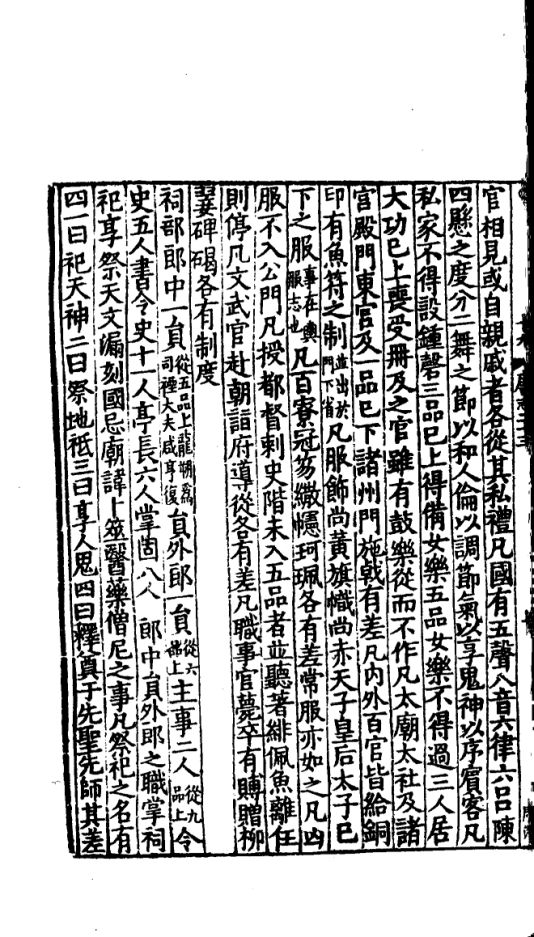 官相見或自親戚者各從其私禮凡國有五聲八音六律六呂陳
四懸之度分二舞之節以和人倫以調節氣以享鬼神以序賓客凡
私家不得設鍾磬三品已上得備女樂五品女樂不得過三人居
大功已上喪受冊及之官雖有鼓樂從而不作凡太廟太社及諸
宮殿門東宮及一品已下諸州門施戟有差凡內外百官皆給銅
印有魚符之制並出於門下省凡服飾尚黃旗幟尚赤天子皇后太子已
下之服事在輿服志也凡百寮冠笏繖幰珂珮各有差常服亦如之凡凶
服不入公門凡授都督刺史階未入五品者並聽著緋佩魚離任
則停凡文武官赴朝詣府導從各有差凡職事官薨卒有賻贈柳
翣碑碣各有制度
祠部郎中一員從五品上龍朔爲司禋大夫咸亨復員外郎一員從六品上主事二人從九品上令
史五人書令史十一人亭長六人掌固八人 郎中員外郎之職掌祠
祀享祭天文漏刻國忌廟諱卜筮醫藥僧尼之事凡祭祀之名有
四一曰祀天神二曰祭地祇三曰享人鬼四曰釋奠于先聖先師其差